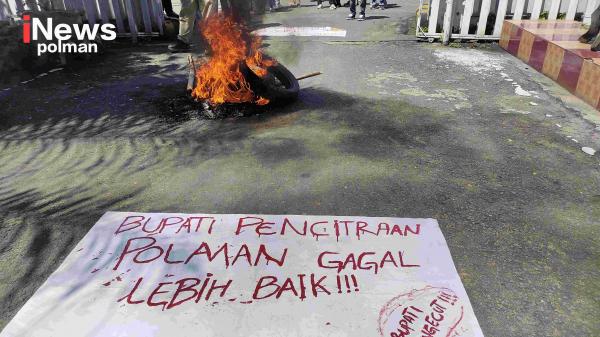 iNews
polman
BUPATI PENCITRAAN
POLMAN GAGAL
LEBIH BAIK!!!
BUPATI